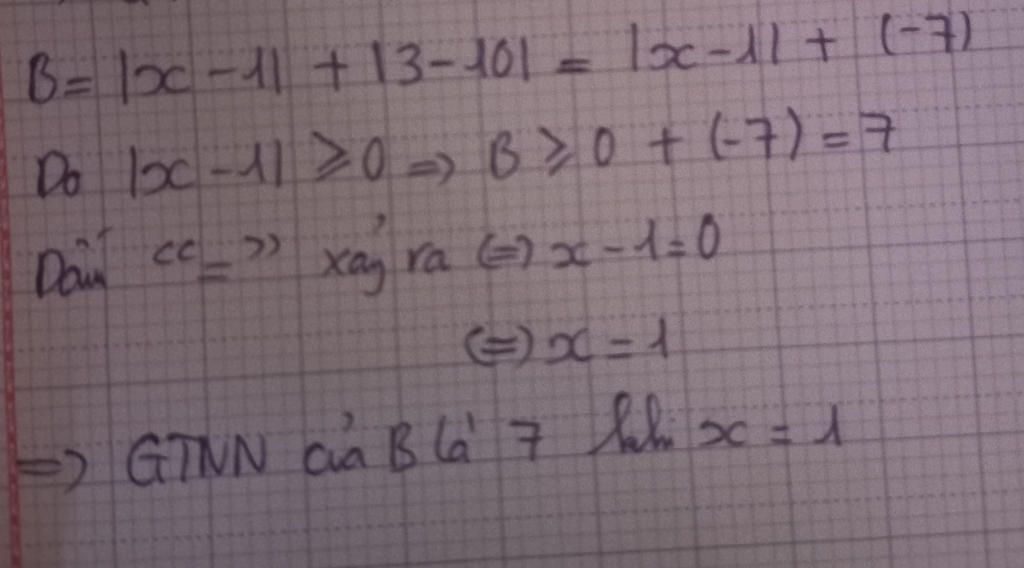 B = |x - 1| + |3 - 10| = |x - 1| + (-7)
Do |x - 1| ⩾ 0 => B ⩾ 0 + (-7) = 7
Dấu "=" xảy ra (=) x - 1 = 0
(=) x = 1
=> GTNN của B là 7 khi x = 1